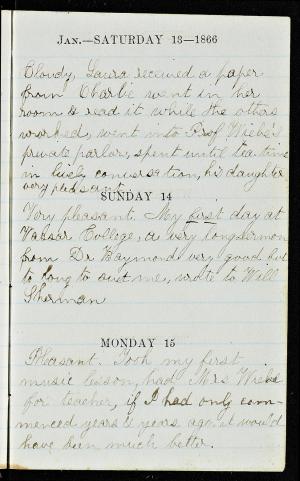 JAN.—SATURDAY 13—1866
Cloudy, Laura received a paper
from Charlie went in her
room to read it while the others
worked, went into Prof Wiebe's
private parlor, spent until tea time
in lively conversation, his daughter
very pleasant.
SUNDAY 14
Very pleasant. My first day at
Vassar College, a very long sermon
from Dr Raymond very good but
to long to suit me, wrote to Will
Sherman
MONDAY 15
Pleasant. Took my first
music lesson, had Mrs Wiebe
for teacher, if I had only com-
menced years & years ago it would
have been much better.